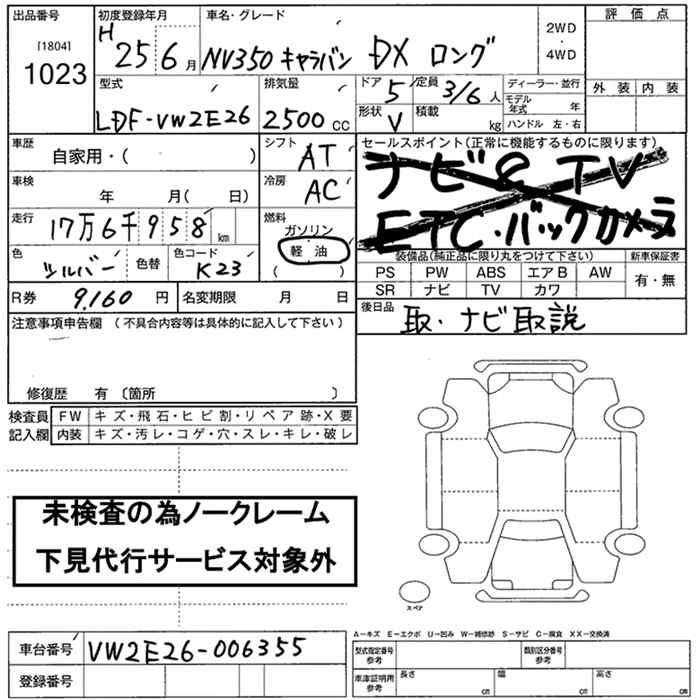 出品番号
[1804]
1023
初度登録年月
H 25 6 月
車名・グレード
NV350 キャラバン DX ロング
2WD
・
4WD
評価点
外装 内装
型式
LDF-VW2E26
排気量
2500 CC
ドア 5
定員 3/6 人
形状 V
積載 kg
ディーラー・並行
モデル年式 年
ハンドル 左・右
車歴
自家用・( )
シフト AT
車検
年 月( 日)
冷房 AC
セールスポイント(正常に機能するものに限ります)
ナビ& TV
ETC・バックカメラ
走行
17万6千958 km
燃料
ガソリン
軽油
( )
色
シルバー
色替
色コード
K23
装備品(純正品に限り丸をつけて下さい)
PS PW ABS エアB AW
SR ナビ TV カワ
新車保証書
有・無
R券 9,160 円
名変期限 月 日
後日品
取・ナビ取説
注意事項申告欄(不具合内容等は具体的に記入して下さい)
修復歴 有〔箇所 〕
検査員記入欄
FW キズ・飛石・ヒビ割・リペア跡・X要
内装 キズ・汚レ・コゲ・穴・スレ・キレ・破レ
未検査の為ノークレーム
下見代行サービス対象外
スペア
A-キズ E-エクボ U-凹み W-補修跡 S-サビ C-腐食 XX-交換済
車台番号 VW2E26-006355
登録番号
型式指定番号 参考
類別区分番号 参考
車庫証明用 参考
長さ cm
幅 cm
高さ cm